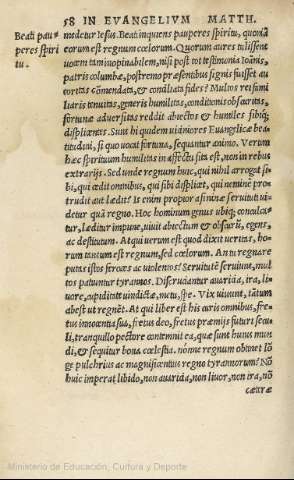 58 IN EVANGELIVM MATTH.
Beati pau-
peres spiri
tu.
medetur Iesus. Beati inquiens pauperes spiritu, quoniã
eorum est regnum cœlorum. Quorum aures tulissent
vocem tam inopinabilem, nisi post tot testimonia Ioãnis,
patris columbæ, postremo præsentibus signis fuisset au
toritas cõmendata, & conciliata fides? Multos rei fami
liaris tenuitas, generis humilitas, conditionis obscuritas,
fortunæ adversitas reddit abiectos & humiles sibiq;
displicentes. Sunt hi quidem viciniores Euangelicæ bea-
titudini, si quo vocat fortuna, sequatur animo. Verum
hæc spirituum humilitas in affectu sita est, non in rebus
extrarijs. Sed unde regnum huic, qui nihil arrogat si-
bi, qui cedit omnibus, qui sibi displicet, qui neminẽ pro-
trudit aut lædit? Is enim propior asininæ servituti vi-
detur quã regno. Hoc hominum genus ubiq; conculca-
tur, læditur impune, vivit abiectum & obscurũ, egens,
ac destitutum. At qui verum est quod dixit veritas, ho-
rum tantum est regnum, sed cœlorum. An tu regnare
putas istos feroces ac violentos? Servitutẽ serviunt, mul-
tos patiuntur tyrannos. Discruciantur avaricia, ira, li-
vore, cupiditate vindictæ, metu, spe. Vix vivunt, tãtum
abest ut regnẽt. At qui liber est his curis omnibus, fre-
tus innocentia sua, fretus deo, fretus præmijs futuri secu-
li, tranquillo pectore contemnit ea, quæ sunt huius mun
di, & sequitur bona cœlestia. nõnne regnum obtinet lõ-
ge pulchrius ac magnificentius regno tyrannorum? Nõ
huic imperat libido, non avaricia, non livor, non ira, nõ
cæteræ
Ministerio de Educación, Cultura y Deporte